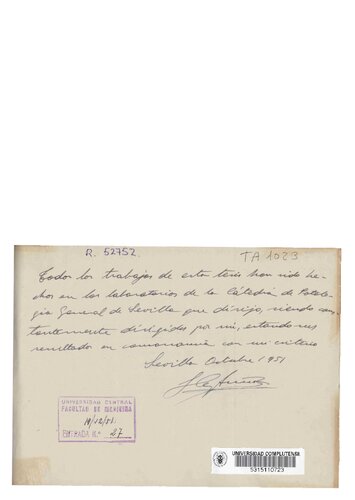 R. 52752
TA 1023
Todos los trabajos de esta tesis han sido he-
chos en los laboratorios de la Cátedra de Patolo-
gia General de Sevilla que dirijo, siendo cons-
tantemente dirigidos por mi, estando sus
resultados en consonancia con mi criterio
Sevilla Octubre 1951
UNIVERSIDAD CENTRAL
FACULTAD DE MEDICINA
19/12/51
ENTRADA N.º 27
UNIVERSIDAD COMPLUTENSE
5315110723